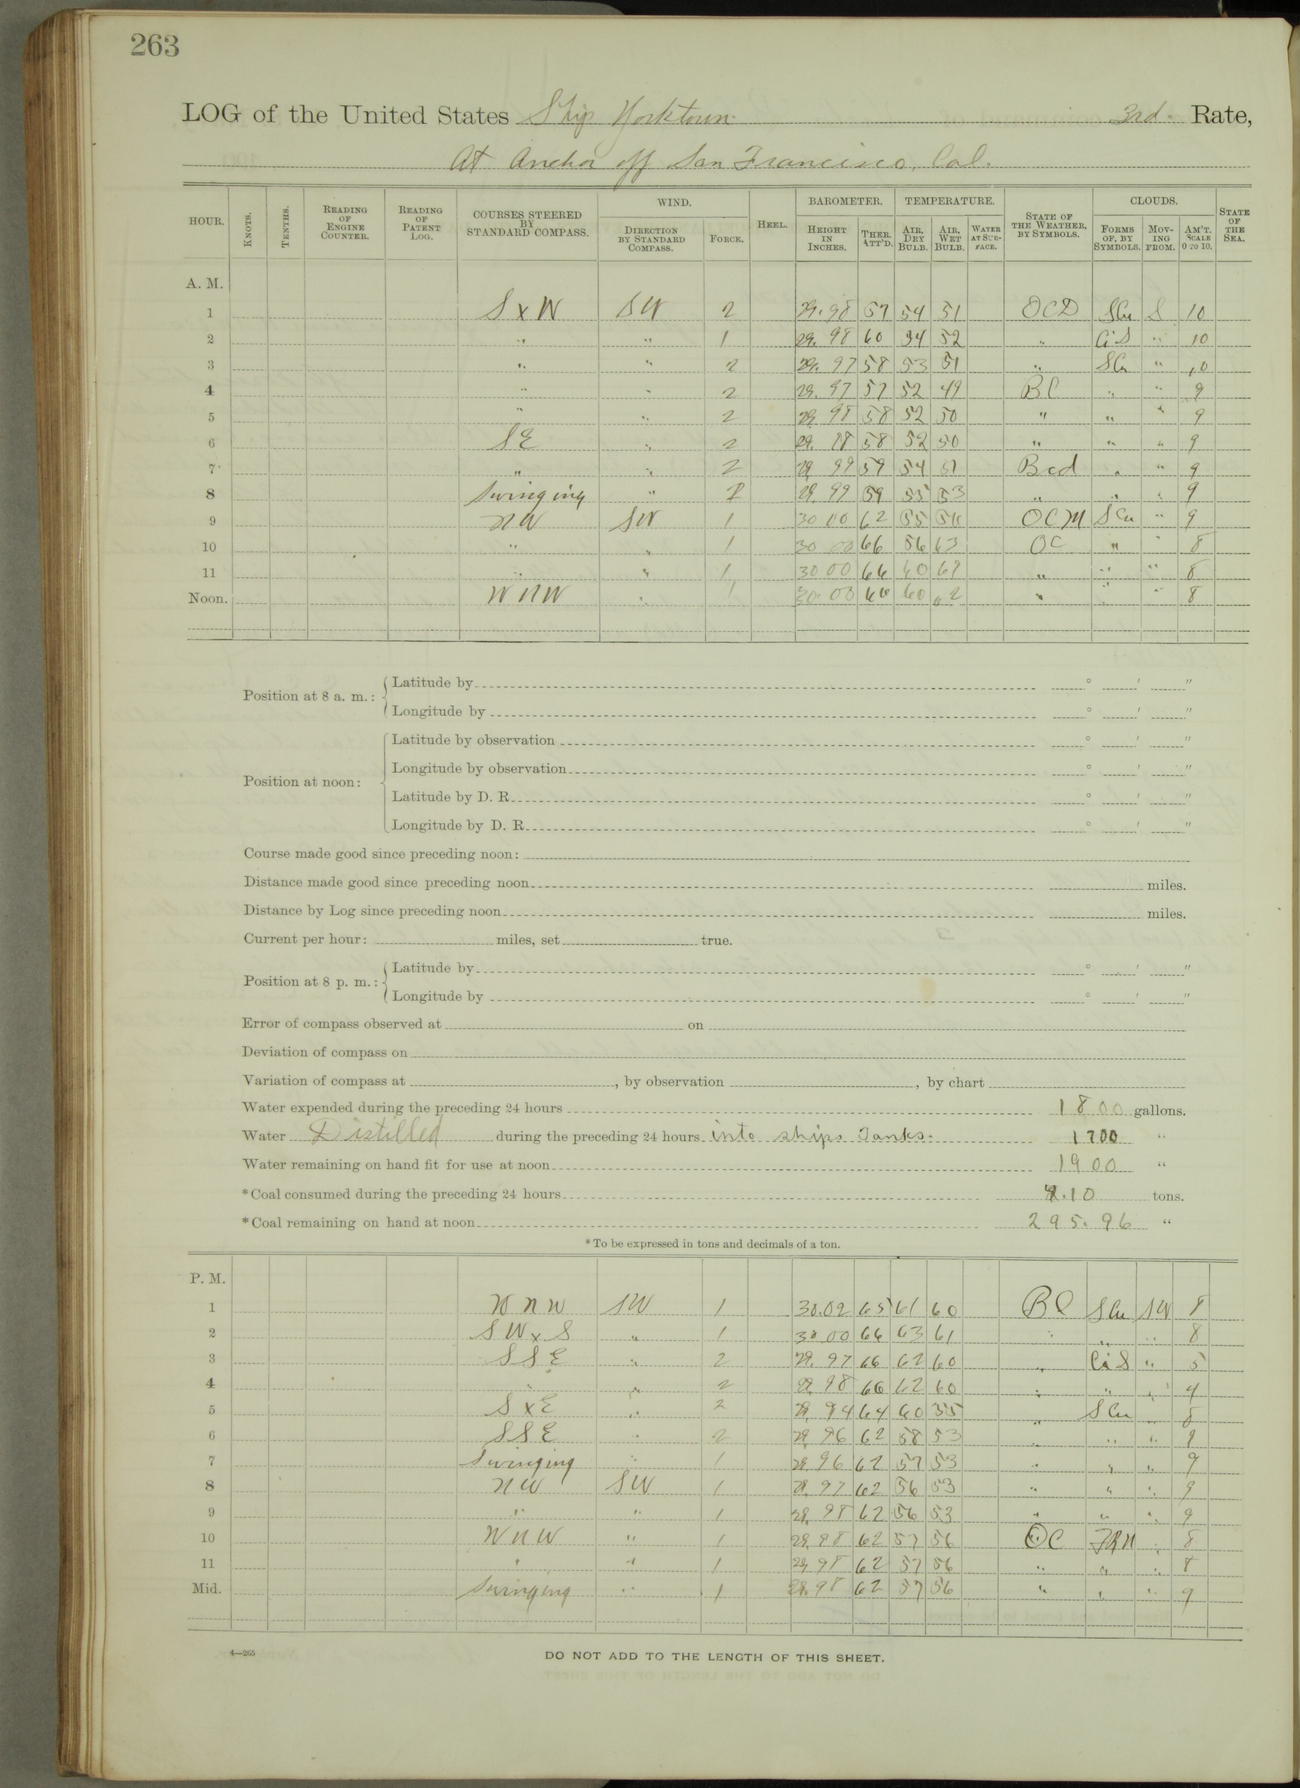 263
LOG of the United States Ship Yorktown 3rd Rate,
At Anchor off San Francisco, Cal.
HOUR. KNOTS. TENTHS. READING OF ENGINE COUNTER. READING OF PATENT LOG. COURSES STEERED BY STANDARD COMPASS. WIND. DIRECTION BY STANDARD COMPASS. FORCE. HEEL. BAROMETER. HEIGHT IN INCHES. THER. ATT'D. TEMPERATURE. AIR, DRY BULB. AIR, WET BULB. WATER AT SUR-FACE. STATE OF THE WEATHER, BY SYMBOLS. CLOUDS. FORMS OF, BY SYMBOLS. MOV-ING FROM. AM'T. SCALE 0 TO 10. STATE OF THE SEA.
A. M.
1 S x W SW 2 29.98 57 54 51 OCD SCu S 10
2 " " 1 29.98 60 54 52 " CiS " 10
3 " " 2 29.97 58 53 51 " SCu " 10
4 " " 2 29.97 57 52 49 BC " " 9
5 " " 2 29.98 58 52 50 " " " 9
6 SE " 2 29. 58 52 50 " " " 9
7 " " 2 29.99 59 54 51 Bcd " " 9
8 Swinging " 29.99 59 55 53 " " " 9
9 NW SW 1 30.00 62 55 54 OCM SCu " 9
10 " " 1 30.00 66 56 63 OC " " 8
11 " " 1 30.00 66 " " " 8
Noon. WNW " 1 30.00 " " " 8
Position at 8 a. m.: Latitude by ° ' "
Longitude by ° ' "
Position at noon: Latitude by observation ° ' "
Longitude by observation ° ' "
Latitude by D. R. ° ' "
Longitude by D. R. ° ' "
Course made good since preceding noon:
Distance made good since preceding noon miles.
Distance by Log since preceding noon miles.
Current per hour: miles, set true.
Position at 8 p. m.: Latitude by ° ' "
Longitude by ° ' "
Error of compass observed at on
Deviation of compass on
Variation of compass at , by observation , by chart
Water expended during the preceding 24 hours 1800 gallons.
Water Distilled during the preceding 24 hours into ships Tanks. 1700 "
Water remaining on hand fit for use at noon 1900 "
*Coal consumed during the preceding 24 hours .10 tons.
*Coal remaining on hand at noon 295.96 "
*To be expressed in tons and decimals of a ton.
P. M.
1 WNW SW 1 30.02 65 61 60 BC SCu SW 8
2 SWxS " 1 30.00 66 63 61 " " " 8
3 SSE " 2 29.97 66 62 60 " CiS " 5
4 " " 2 29.98 66 62 60 " " " 4
5 SxE " 2 29.94 64 60 55 " SCu " 8
6 SSE " 2 29.96 62 58 53 " " "
7 Swinging " 1 29.96 62 57 53 " " " 9
8 NW SW 1 29.97 62 56 53 " " " 9
9 " " 1 29.98 62 56 53 " " " 9
10 WNW " 1 29.98 62 57 56 OC " 8
11 " " 1 29.98 62 57 56 " " " 8
Mid. Swinging " 1 29.98 62 57 56 " " " 9
4—265
DO NOT ADD TO THE LENGTH OF THIS SHEET.